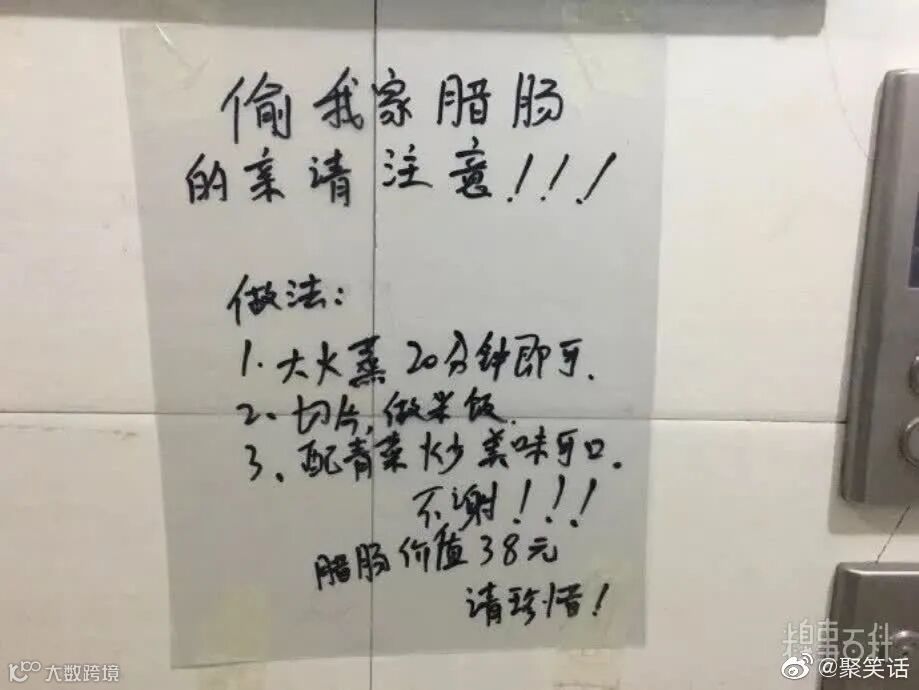 偷我家腊肠
的亲请注意!!!
做法:
1. 大火蒸20分钟即可.
2、切片,做米饭.
3、配青菜炒美味可口.
不谢!!!
腊肠价值38元
请珍惜!
糗事百科
@聚笑话
大数跨境